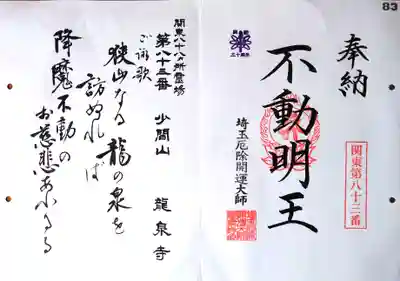 83
奉納
関東第八十三番
不動明王
埼玉厄除開運大師
関東八十八ヵ所霊場
第八十三番 少間山 龍泉寺
ご詠歌
狭山なる龍の泉を
訪ぬれば
降魔不動の
お慈悲あふるる